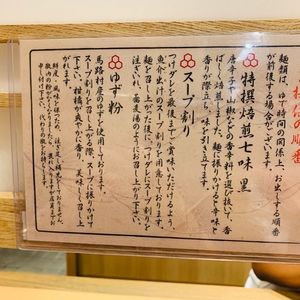 麺類は、ゆで時間の関係上、お出しする順番
が前後する場合がございます。
特撰焙煎七味 黒
唐辛子や山椒などの香辛料を選び抜いて、香
ばしく焙煎しました。麺に振りかけると辛味と
香りが際立ち、味を引き立てます。
スープ割り
つけダレを最後までご賞味いただけるよう、
魚介出汁のスープ割りを用意しております。
麺を召し上がった後に、つけダレにスープ割りを
お注ぎいれ蕎麦湯のようにお召し上がり
下さい。
ゆず粉
馬路村産のゆずを使用しております。
スープ割りを召し上がる際、スープに振りかけて
下さい。柑橘が爽やかに香り、美味しく召し上
がれます。